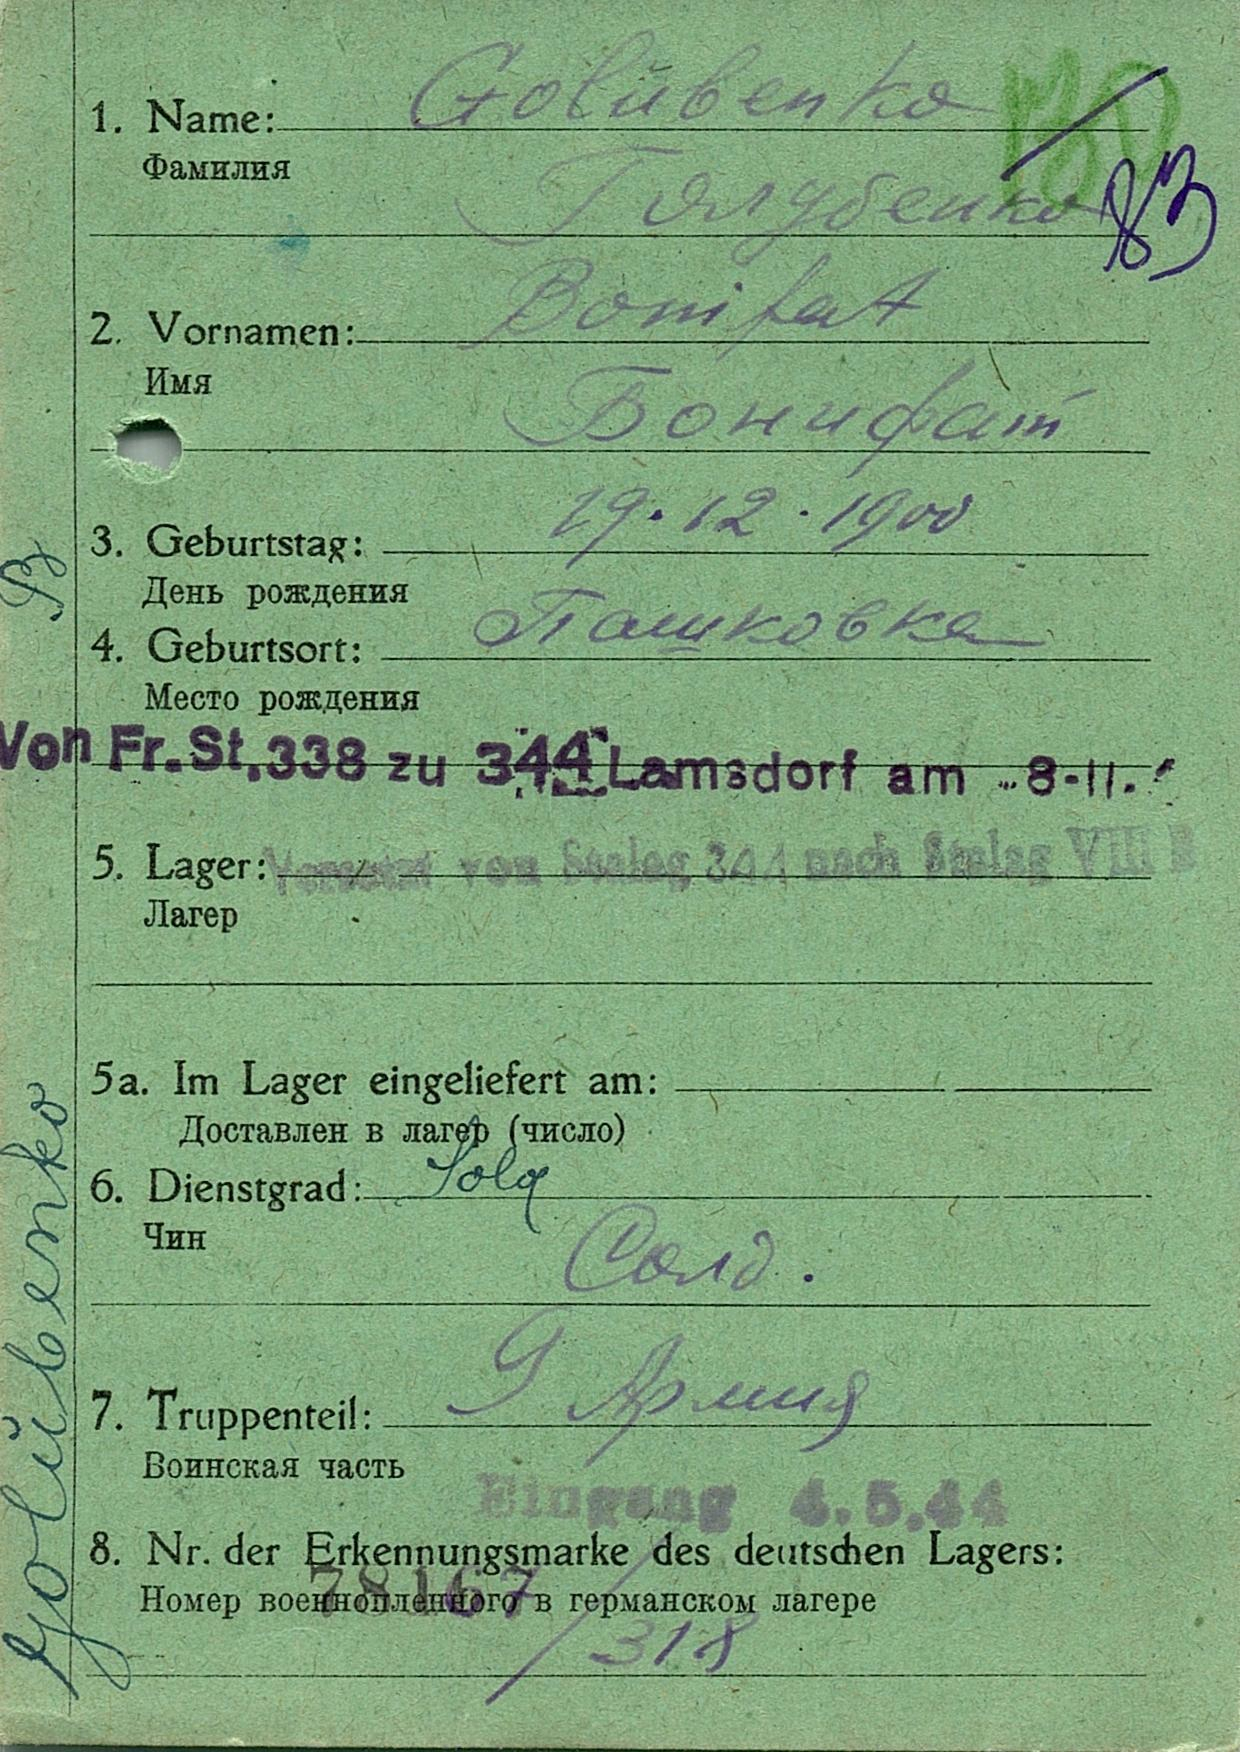 1. Name: Golŭbenko
Фамилия
Голубенко
83
2. Vornamen: Bonifat
Имя
Бонифат
3. Geburtstag: 19.12.1900
День рождения
4. Geburtsort: Пашковка
Место рождения
Von Fr. St. 338 zu 344 Lamsdorf am 8-11.
5. Lager: Versetzt von Stalag 344 nach Stalag VIII B
Лагер
5a. Im Lager eingeliefert am:
Доставлен в лагер (число)
6. Dienstgrad: Sold
Чин
Солд.
7. Truppenteil: 9 Армия
Воинская часть
Eingang 4.5.44
8. Nr. der Erkennungsmarke des deutschen Lagers:
Номер военнопленного в германском лагере
78167 / 318
Golŭbenko B